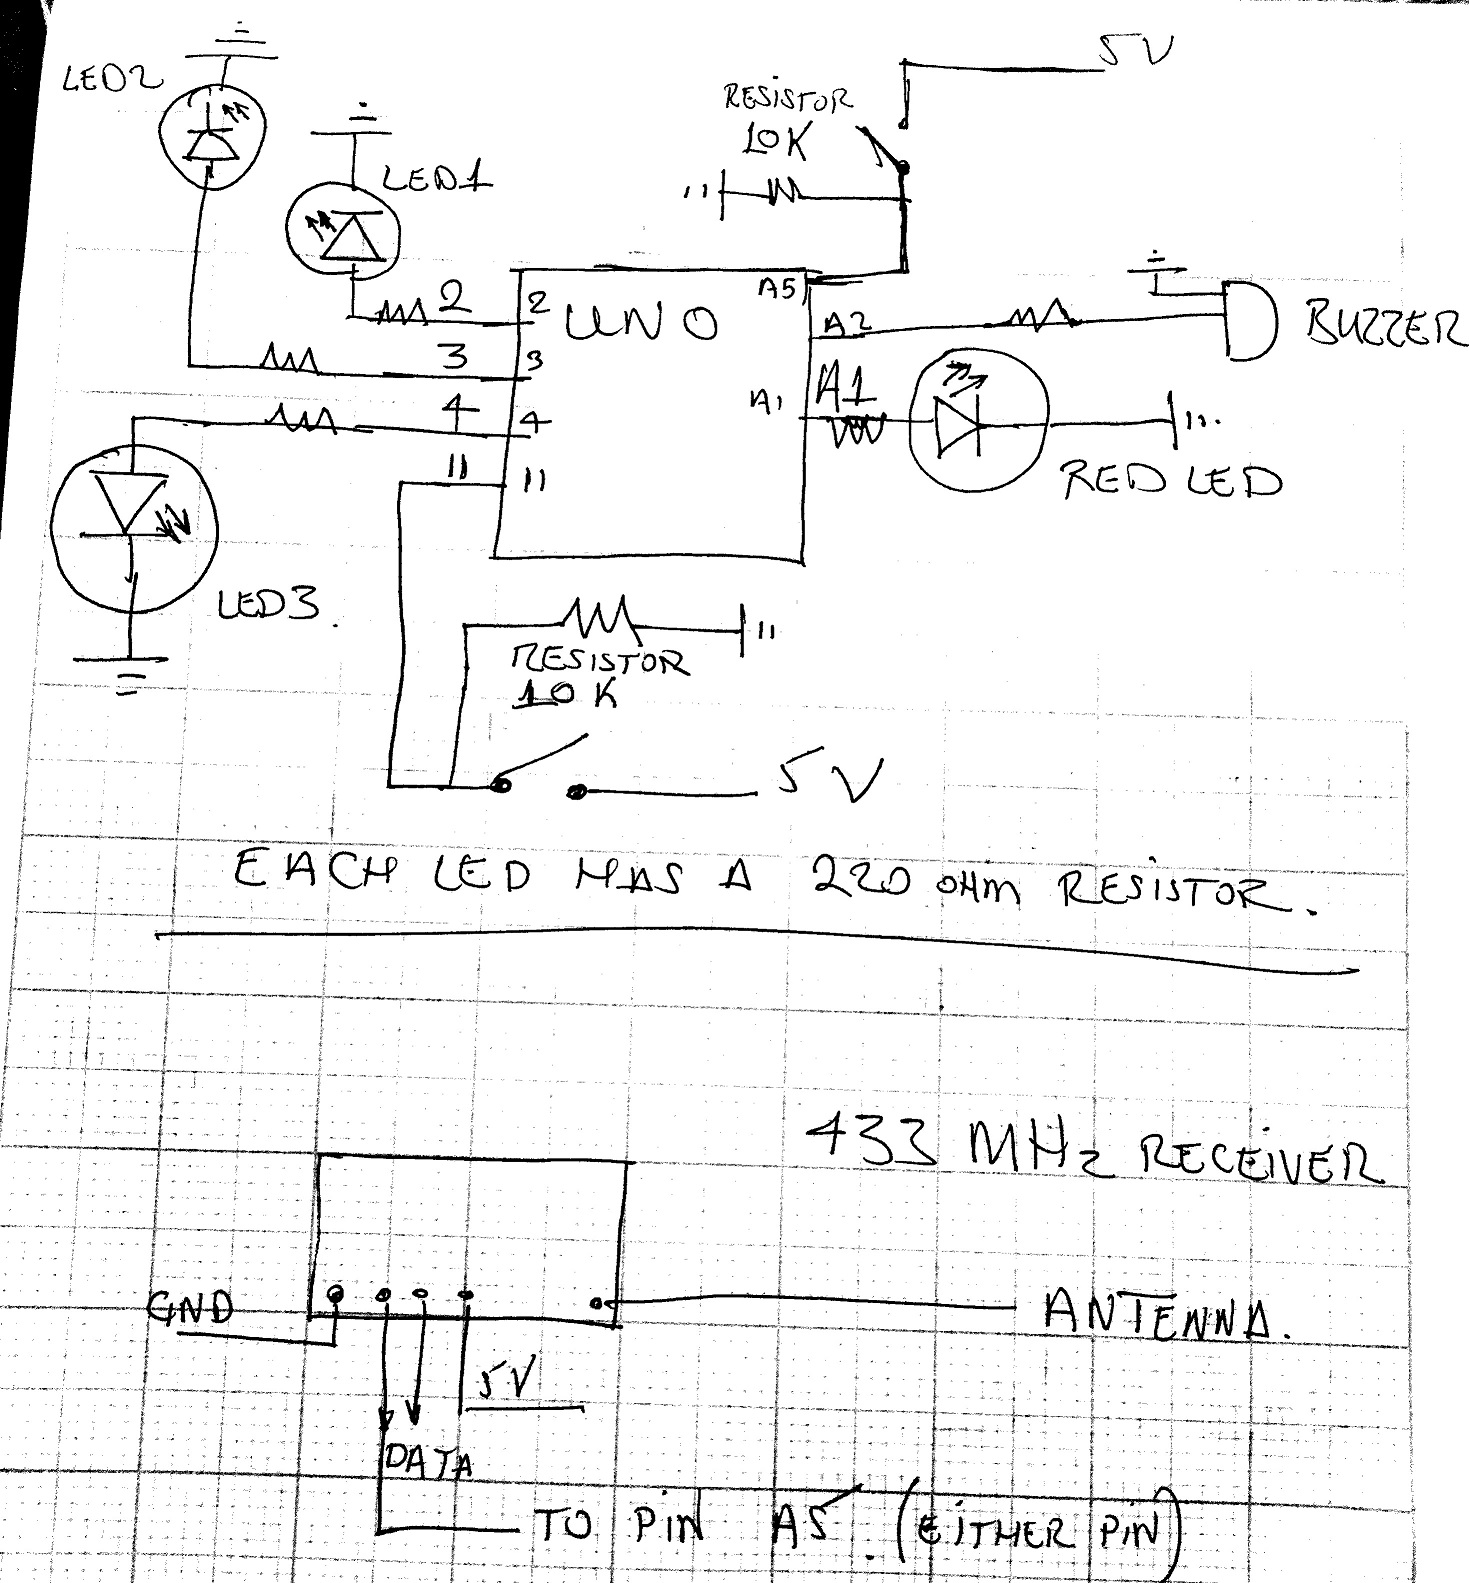 5V
LED2
RESISTOR
10K
LED1
A5
2 2
UNO
A2
BUZZER
3 3
A1 A1
4 4
RED LED
11 11
LED3.
RESISTOR
10K
5V
EACH LED HAS A 220 OHM RESISTOR.
433 MHz RECEIVER
GND
ANTENNA.
5V
DATA
TO PIN A5. (EITHER PIN)